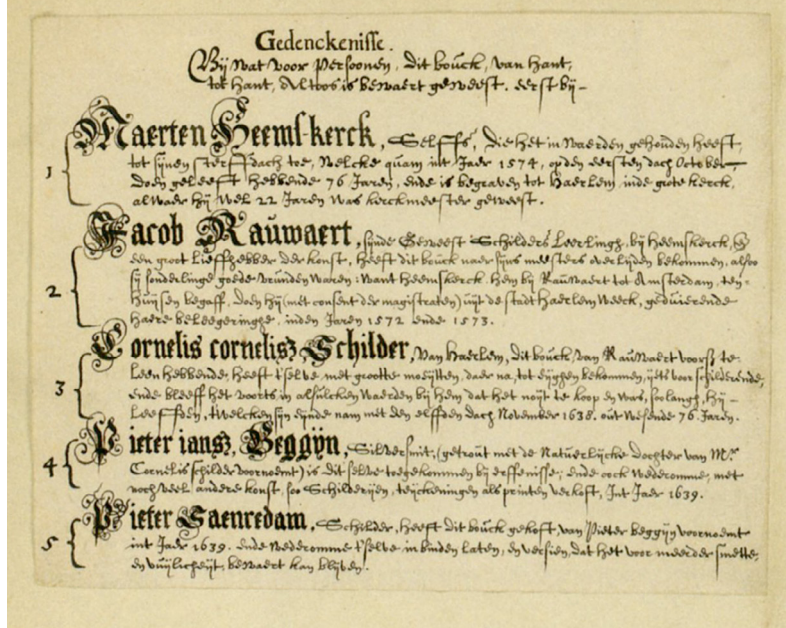 Gedenckenisse.
Bij wat voor Persoonen, dit bouck, van hant,
tot hant, altoos is bewaert geweest. eerst bij -
1 Maerten Heems-kerck, Selffs, die het in waerden gehouden heeft,
tot sijnen sterffdach toe, welcke quam int Jaer 1574, op den eersten dach October,
doen geleefft hebbende 76 Jaren, ende is begraven tot Haerlem, inde grote kerck,
alwaer hij wel 22 Jaren was kerckmeester geweest.
2 Jacob Rauwaert, sijnde Geweest Schilders Leerlingh, bij Heemskerck,
den groot Lieffhebber der konst, heefft dit bouck naer sijns meesters overlijden bekommen, alsoo
sij sonderlinge goede vrunden waren: want Heemskerck hem bij Rauwaert tot Amsterdam, ten -
huijsen begaff, doen hij (met consent der magistraten) uijt de stadt Haerlem weeck, geduierende
haere beleegeringhe, inden Jaren 1572 ende 1573.
3 Cornelis cornelisz Schilder, van Haerlem, dit bouck, van Rauwaert voorsz te
Leen hebbende, heefft t'selve met grootte moeijtten, daer na, tot eijgen bekommen, ijets voor schilderende,
ende bleeff het voorts in alsulcken waerden bij hem dat het noijt te koop en was, soo langh, hij -
Leeffden, t'welck sijn eijnde nam met den elffden dach November 1638. out wesende 76 Jaren.
4 Pieter jansz, Beggijn, Silversmit, (getrout met de Natuerlijcke dochter van Mr.
Cornelis schilder voornoemt) is dit selve toegekommen bij erffenisse, ende oock wederomme, met
noch veel andere konst, soo Schilderijen, teijckeningen als printen verkoft, Int Jaer 1639.
5 Pieter Saenredam, Schilder, heeft dit bouck gekoft, van Pieter beggijn voornoemt
int Jaer 1639. ende wederomme t'selve in binden laten, en versien, dat het voor meerder smette,
en vuijlicheijt, bewaert kan blijven.